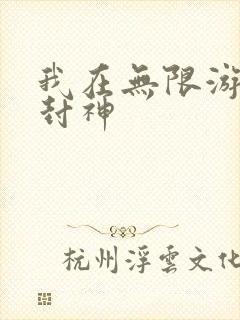 我在無限游
封神
杭州浮雲文化